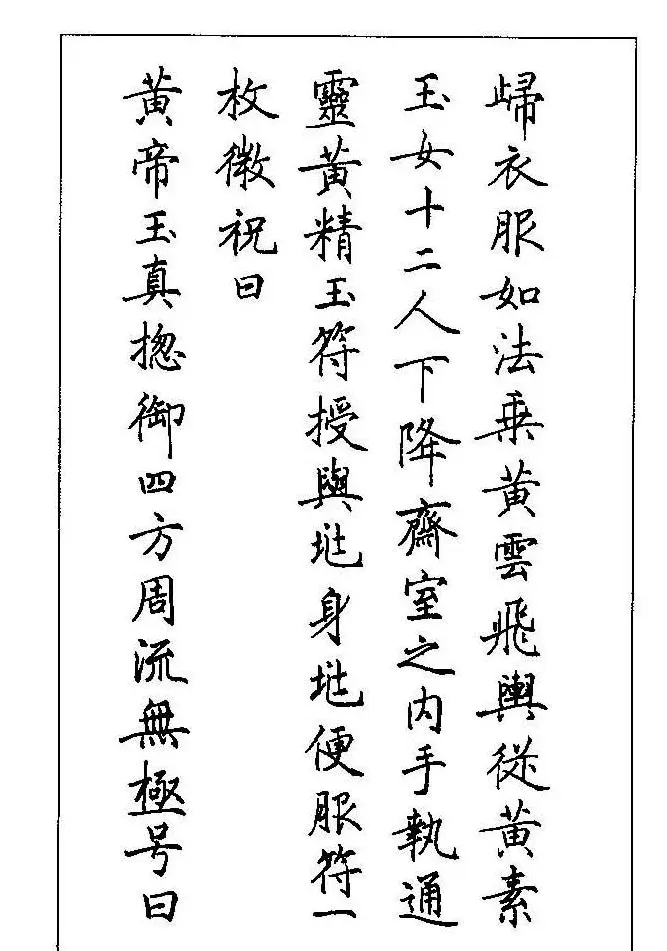 㱕衣服如法乗黄雲飛輿從黄素
玉女十二人下降齋室之内手執通
靈黄精玉符授與兆身兆便服符一
枚微祝曰
黄帝玉真揔御四方周流無極号曰